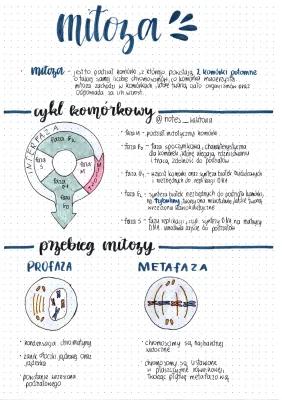 mitoza
• mitoza - jest to podział komórki, z którego powstają 2 komórki potomne
o takiej samej liczbie chromosomów, co komórka macierzysta.
mitoza zachodzi w komórkach, które tworzą ciało organizmów oraz
odpowiada za ich wzrost.
cykl komórkowy @notes_wiktoria
INTERFAZA
faza G₂
faza S
faza M
faza G₁
faza G₀
• faza M - podział mitotyczny komórki
• faza G₀ - faza spoczynkowa, charakterystyczna
dla komórek, które
i tracą zdolność do podziałów
• faza G₁ - wzrost komórki oraz synteza białek
niezbędnych do replikacji DNA
• faza G₂ - synteza białek niezbędnych do podziału komórki,
np. tubuliny tworzą one mikrotubule, jakie tworzą
wrzeciono
• faza S - faza replikacji, czyli syntezy DNA na matrycy
DNA umożliwia zajście do podziałów
przebieg mitozy
PROFAZA
METAFAZA
• kondensacja chromatyny
• zanik otoczki jądrowej oraz
jąderka
• powstanie wrzeciona
podziałowego
• chromosomy są najbardziej
widoczne
• chromosomy są ustawione
w płaszczyźnie równikowej,
tworząc płytkę metafazową